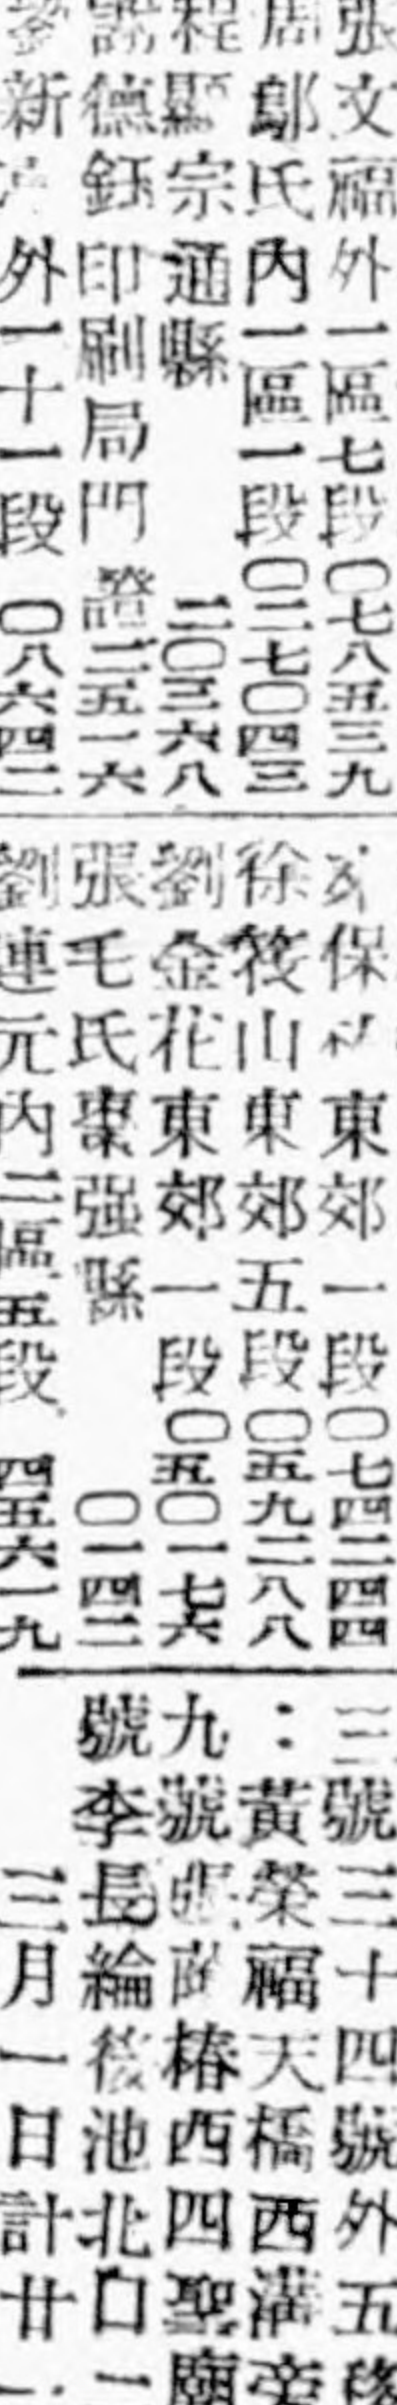 張文福外一區七段〇七八五三九
周鄔氏內一區一段〇二七〇四三
程顯宗通縣二〇三六八
謝德鈺印刷局門證二五一六
新外一十一段〇八六四二
保東郊一段〇七四二四四
徐筱山東郊五段〇五九二八八
劉金花東郊一段〇五〇一七六
張毛氏棗强縣〇一四二
劉連元內二區五段四五六一九
三號三十四號外五
：黃榮福天橋西溝旁
九號張椿西四聖廟
號李長綸後池北口一
三月一日計廿一